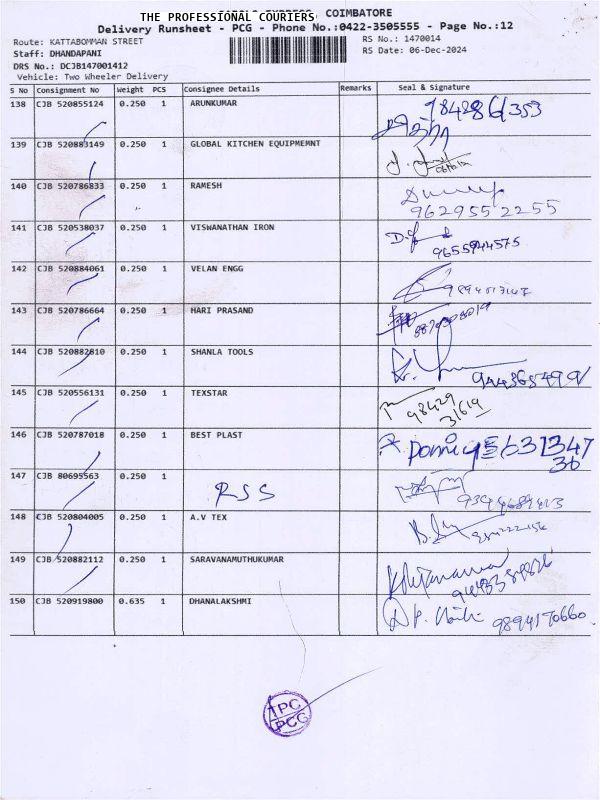 THE PROFESSIONAL COURIERS COIMBATORE
Delivery Runsheet - PCG - Phone No.:0422-3505555 - Page No.:12
Route: KATTABOMMAN STREET RS No.: 1470014
Staff: DHANDAPANI RS Date: 06-Dec-2024
DRS No.: DCJB147001412
Vehicle: Two Wheeler Delivery
S No Consignment No Weight PCS Consignee Details Remarks Seal & Signature
138 CJB 520855124 0.250 1 ARUNKUMAR
139 CJB 520883149 0.250 1 GLOBAL KITCHEN EQUIPMEMNT
140 CJB 520786833 0.250 1 RAMESH
9629552255
141 CJB 520538037 0.250 1 VISWANATHAN IRON
9655944575
142 CJB 520884061 0.250 1 VELAN ENGG
143 CJB 520786664 0.250 1 HARI PRASAND
144 CJB 520882810 0.250 1 SHANLA TOOLS
145 CJB 520556131 0.250 1 TEXSTAR
98429
31619
146 CJB 520787018 0.250 1 BEST PLAST
147 CJB 80695563 0.250 1 RSS
148 CJB 520804005 0.250 1 A.V TEX
149 CJB 520882112 0.250 1 SARAVANAMUTHUKUMAR
150 CJB 520919800 0.635 1 DHANALAKSHMI
9894170660
TPC
PCG